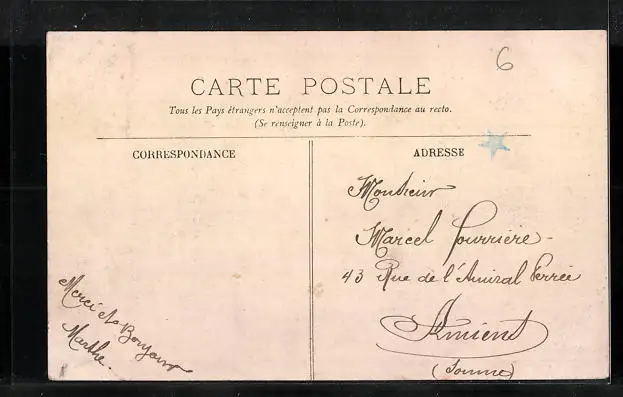 6
CARTE POSTALE
Tous les Pays étrangers n'acceptent pas la Correspondance au recto.
(Se renseigner à la Poste).
CORRESPONDANCE
ADRESSE
Merci et Bonjour
Marthe.
Monsieur
Marcel Fourrière -
43 Rue de l'Amiral
Amiens
(Somme)